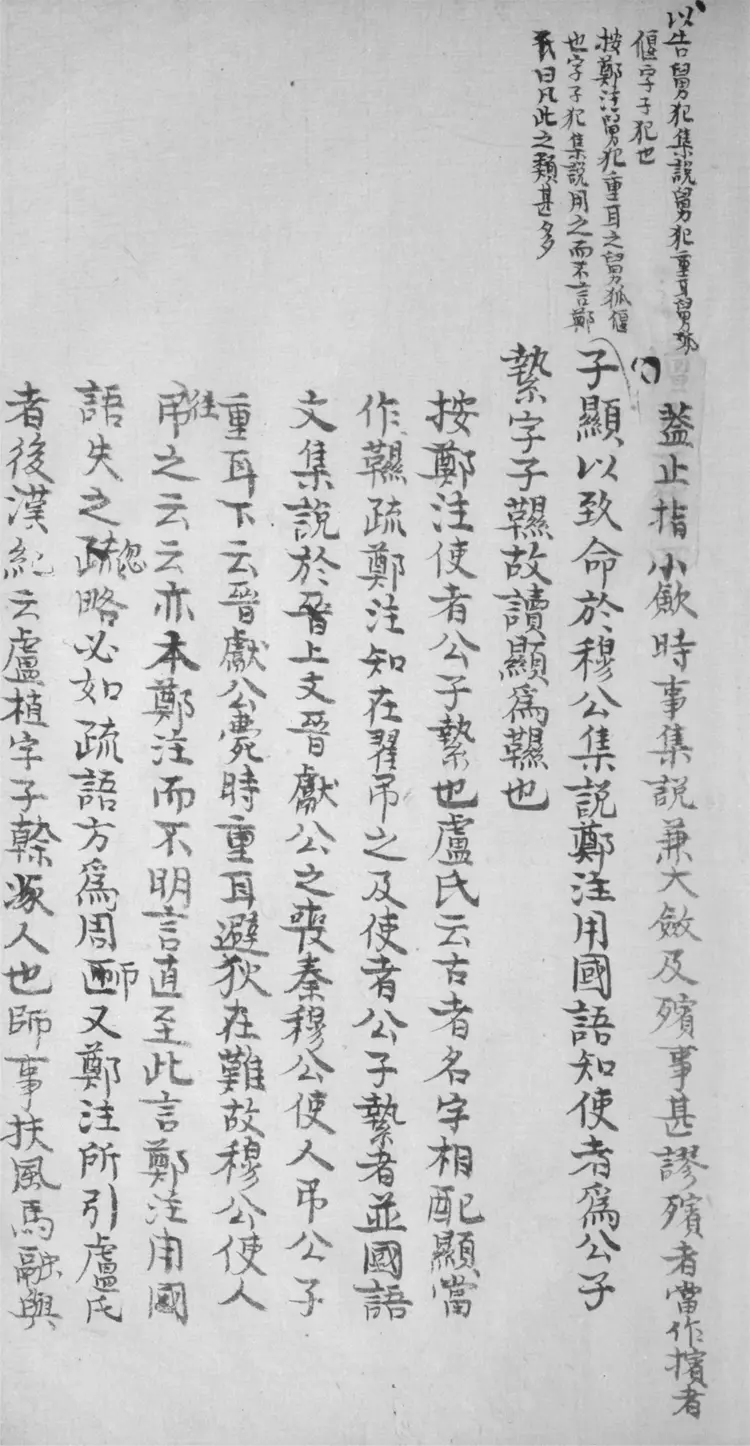 以告舅犯集說舅犯重耳舅狐
偃字子犯也
按鄭注舅犯重耳之舅狐偃
也字子犯集說用之而不言鄭
氏曰凡此之類甚多
蓋止指小斂時事集說兼大斂及殯事甚謬殯者當作擯者
子顯以致命於穆公集說鄭注用國語知使者為公子
縶字子韅故讀顯為韅也
按鄭注使者公子縶也盧氏云古者名字相配顯當
作韅疏鄭注知在翟弔之及使者公子縶者並國語
文集說於晉上文晉獻公之喪秦穆公使人弔公子
重耳下云晉獻公薨時重耳避狄在難故穆公使人
往弔之云云亦本鄭注而不明言直至此言鄭注用國
語失之疏忽略必如疏語方為周匝又鄭注所引盧氏
者後漢紀云盧植字子榦涿人也師事扶風馬融與